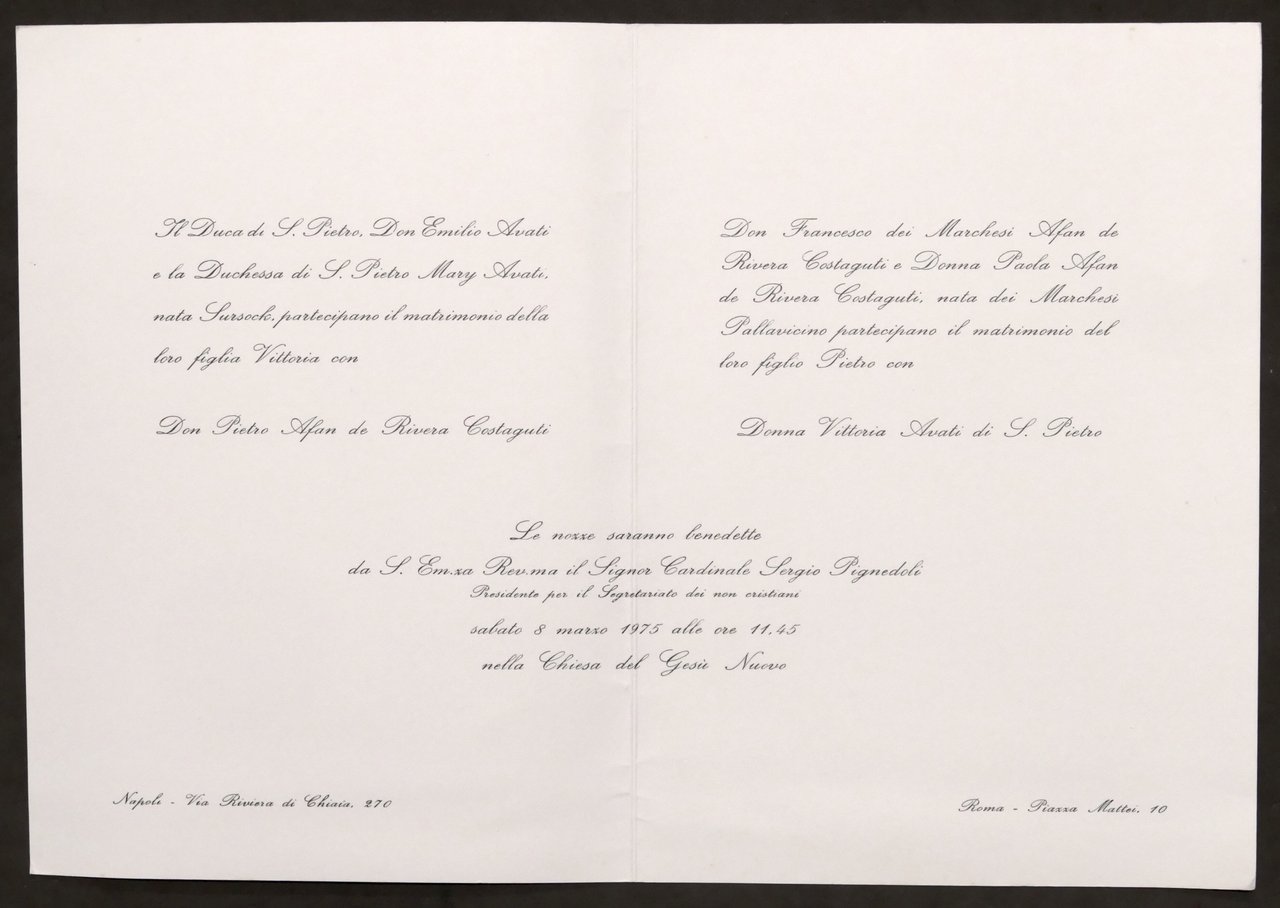 Il Duca di S. Pietro, Don Emilio Avati
e la Duchessa di S. Pietro Mary Avati,
nata Sursock, partecipano il matrimonio della
loro figlia Vittoria con
Don Pietro Afan de Rivera Costaguti
Don Francesco dei Marchesi Afan de
Rivera Costaguti e Donna Paola Afan
de Rivera Costaguti, nata dei Marchesi
Pallavicino partecipano il matrimonio del
loro figlio Pietro con
Donna Vittoria Avati di S. Pietro
Le nozze saranno benedette
da S. Em.za Rev.ma il Signor Cardinale Sergio Pignedoli
Presidente per il Segretariato dei non cristiani
sabato 8 marzo 1975 alle ore 11,45
nella Chiesa del Gesù Nuovo
Napoli - Via Riviera di Chiaia, 270
Roma - Piazza Mattei, 10